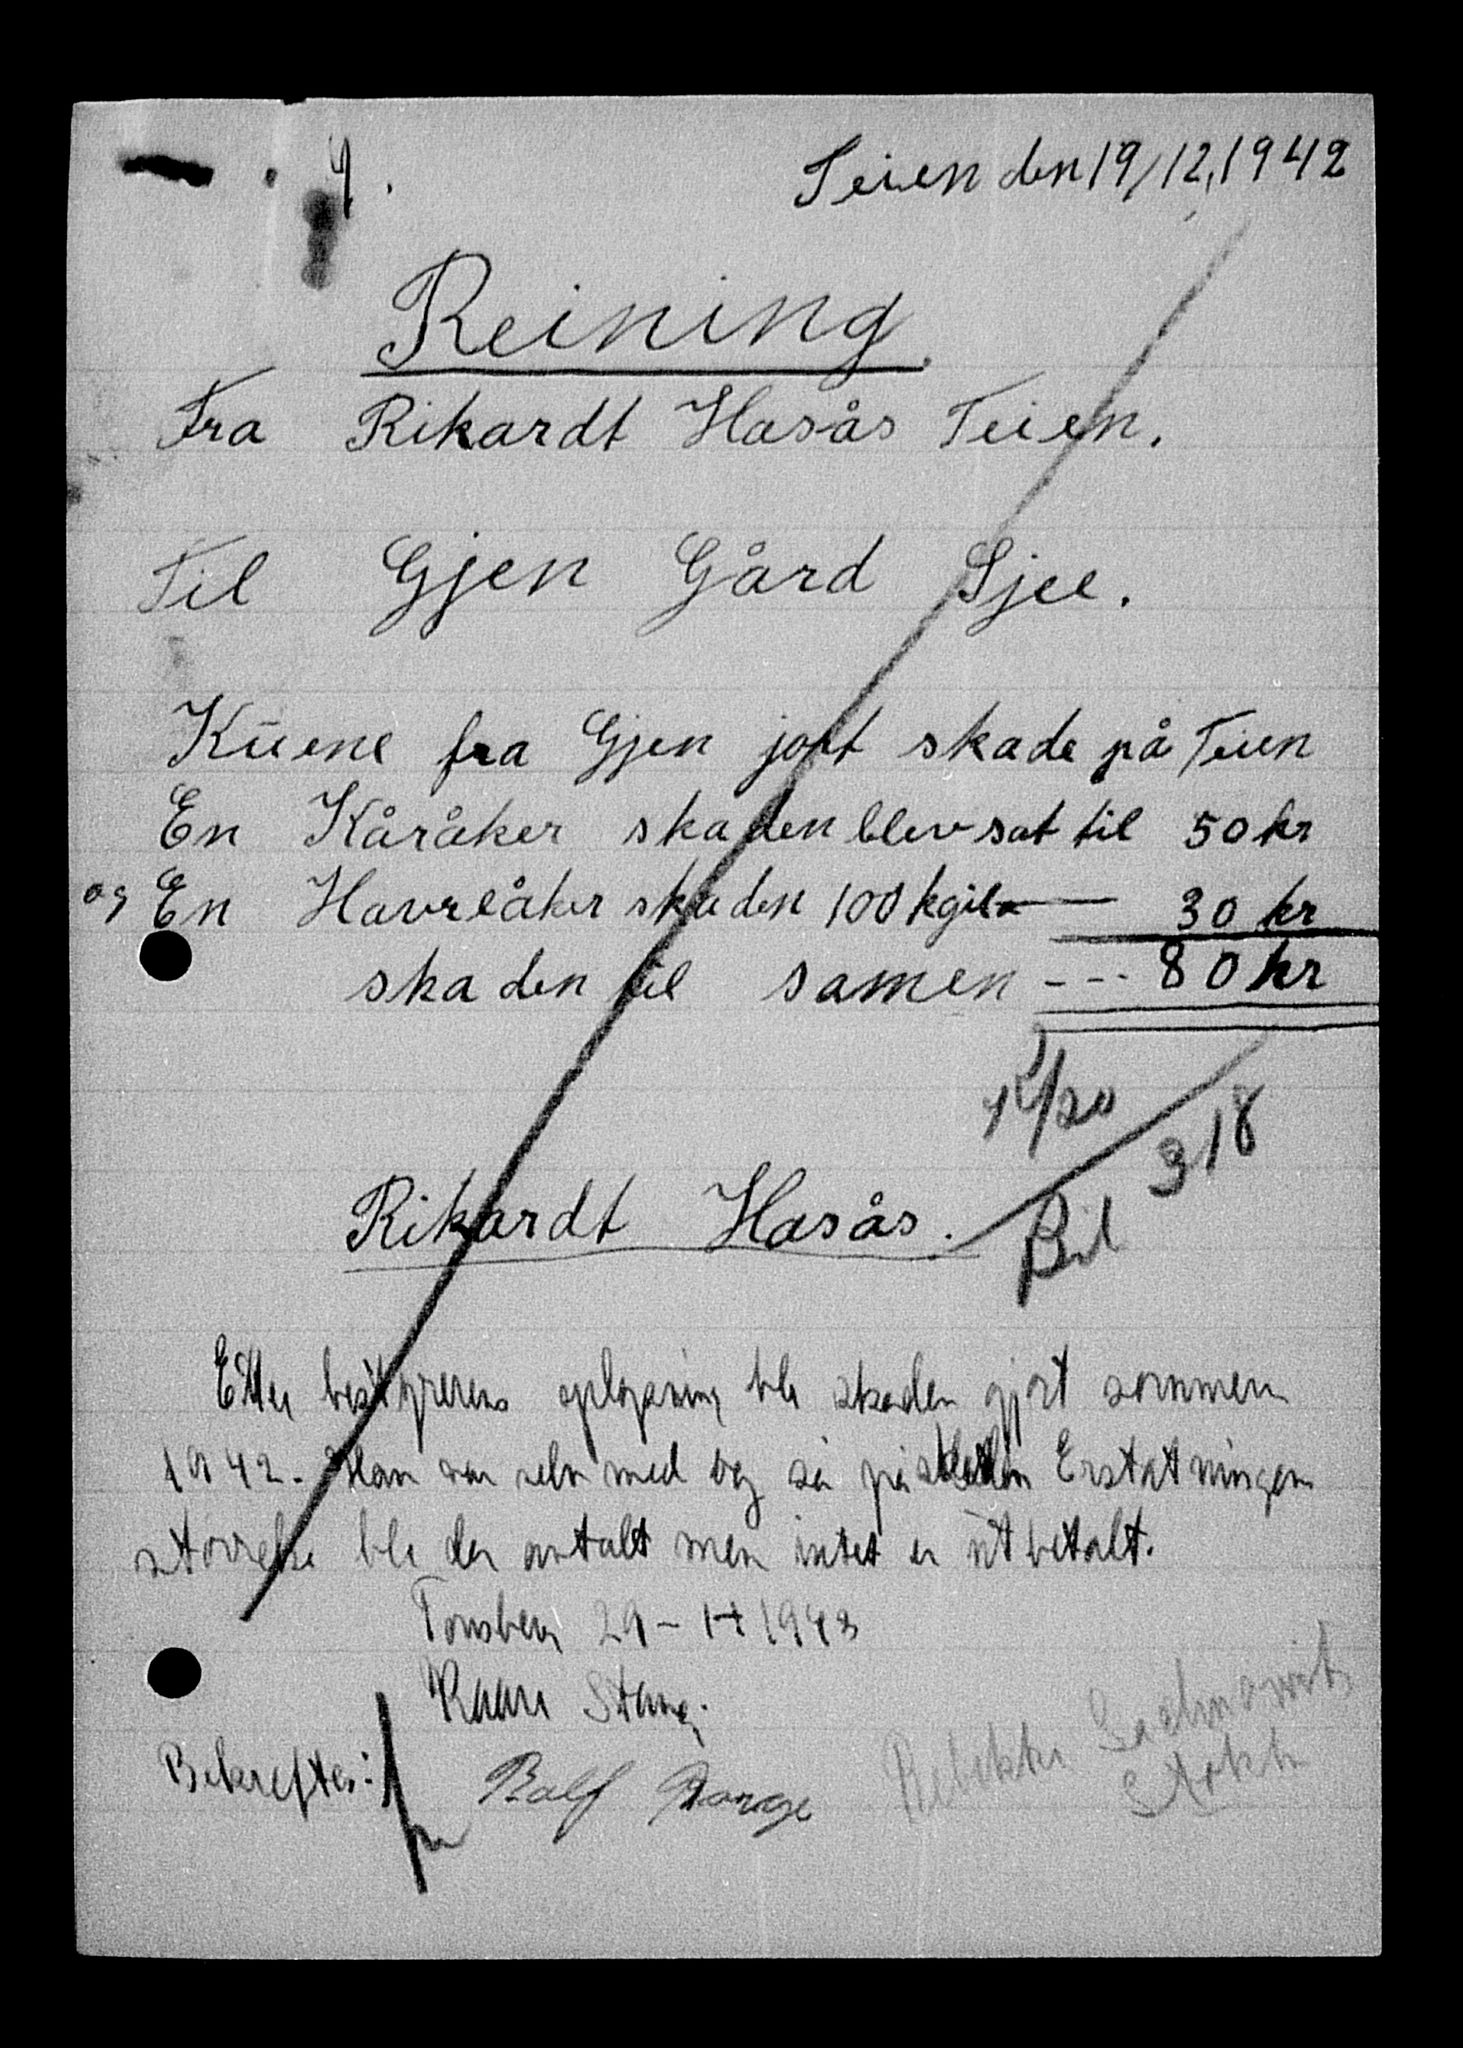 Teien den 19/12, 1942
Reining
Fra Rikardt Hasås Teien.
Til Gjen Gård Sjee.
Kuene fra Gjen jort skade på Teien
En Kåråker skaden blev sat til 50 kr
og En Havreåker skaden 100 kg 30 kr
skaden til samen --- 80 kr
318
Bil
Rikardt Hasås.
Etter bestyrerens oplysning ble skaden gjort sommeren
1942. Han var selv med og så på skaden Erstatningens
størrelse ble der avtalt men intet er utbetalt.
Tønsberg 29 - 1943
Kaare Stang.
Bekreftes:
Rolf